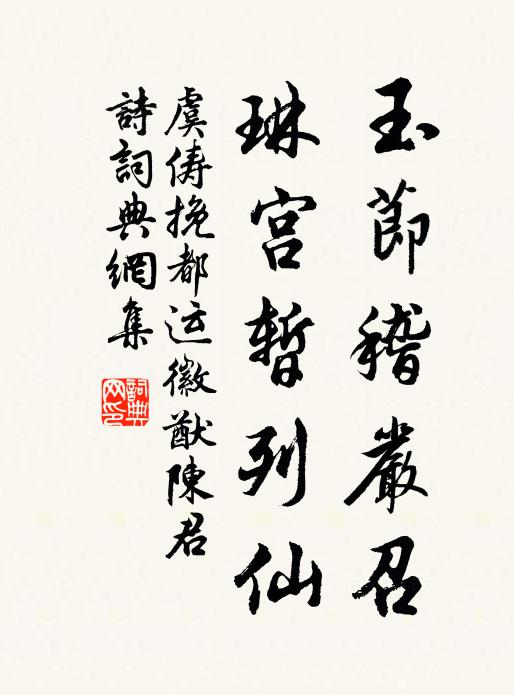 玉節稽嚴召
琳宫暫列仙
虞儔挽都运徽猷陳君
詩詞典網集
詞典網印